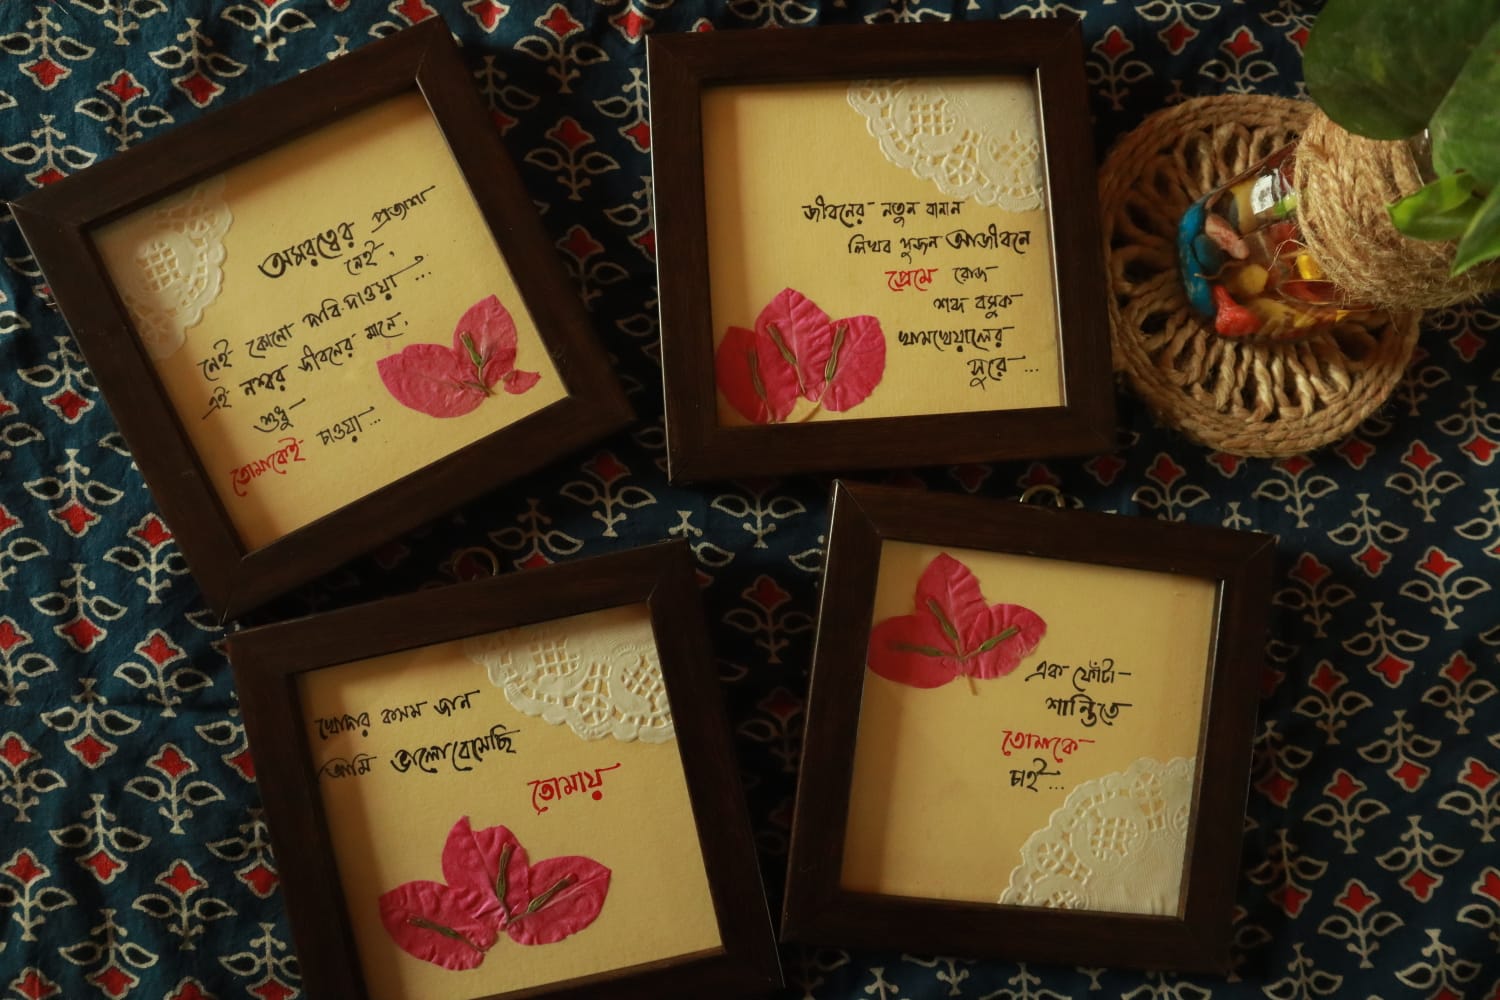 অমরত্বের প্রত্যাশা
নেই,
নেই কোনো দাবি-দাওয়া...
এই নশ্বর জীবনের মানে,
শুধু
তোমাকেই চাওয়া...
জীবনের নতুন বানান
লিখব দুজন আজীবনে
প্রেমে রোজ
শব্দ বসুক
খামখেয়ালের
সুরে...
খোদার কসম জান
আমি ভালোবেসেছি
তোমায়
এক ফোঁটা
শান্তিতে
তোমাকে
চাই...